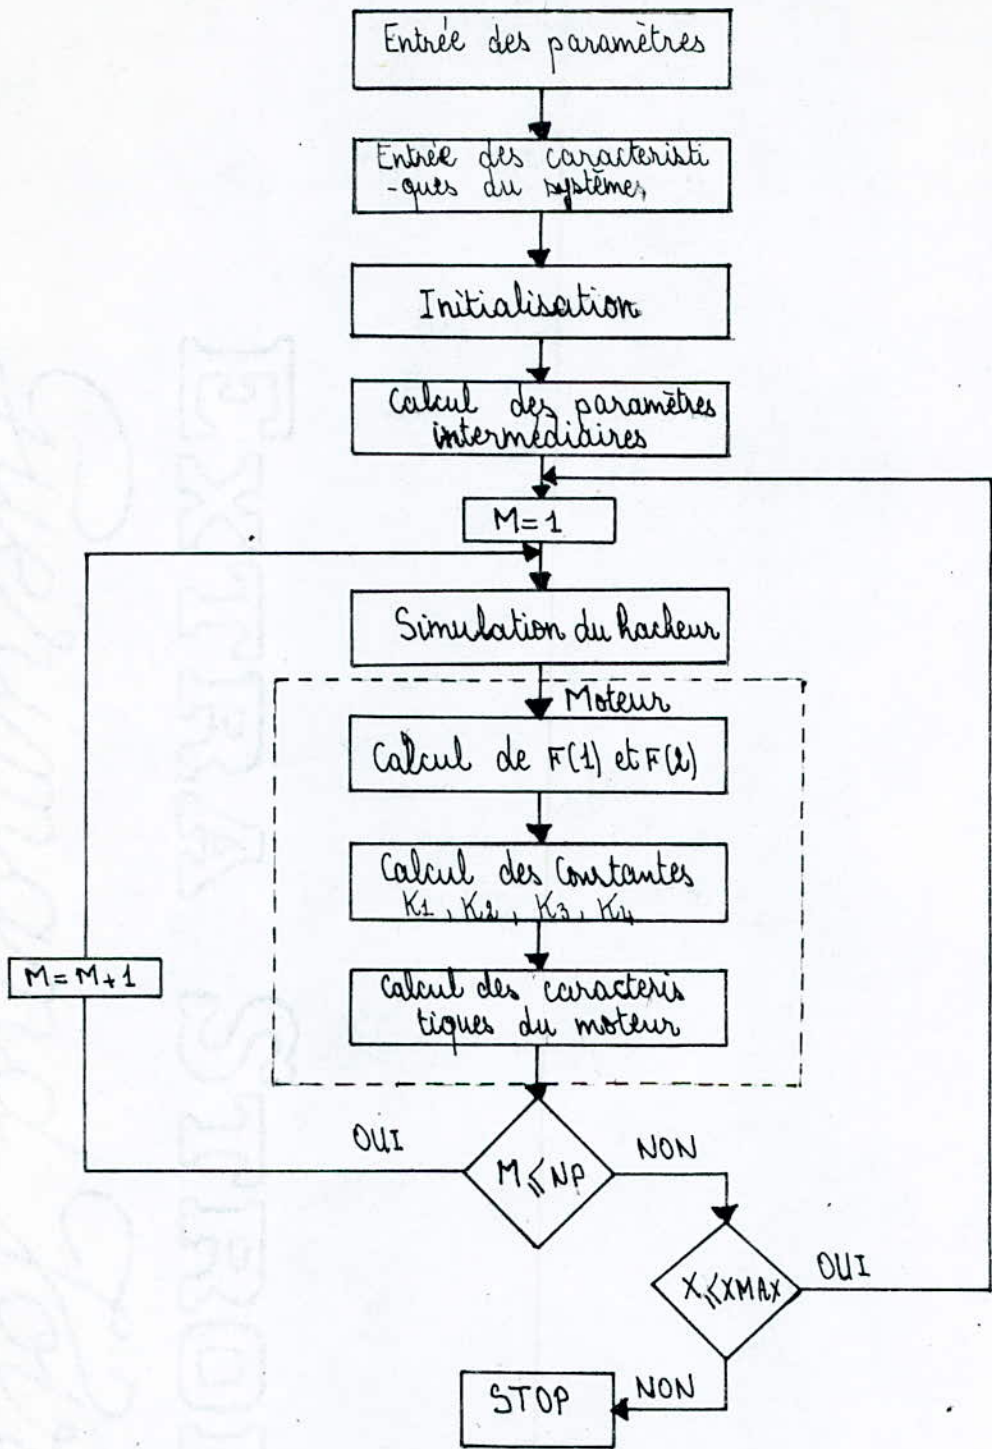 Entrée des paramètres
Entrée des caracteristi
-ques du systèmes
Initialisation
Calcul des paramètres
intermédiaires
M=1
Simulation du hacheur
Moteur
Calcul de F(1) et F(2)
Calcul des Constantes
K1, K2, K3, K4
M=M+1
Calcul des caracteris
tiques du moteur
OUI
M⩽NP
NON
X⩽XMAX
OUI
STOP
NON